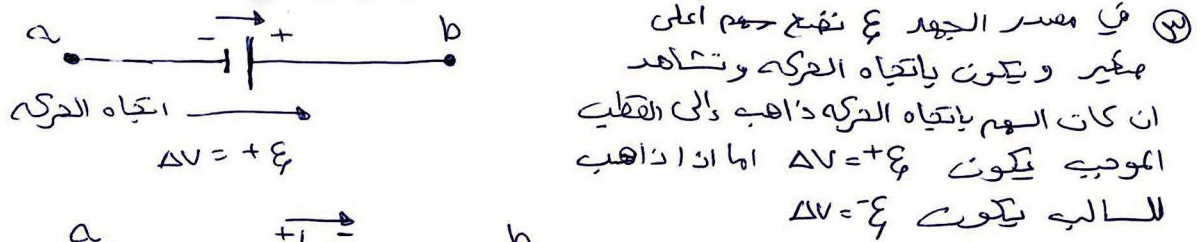 ③ في مصدر الجهد ℰ نضع سهم اعلى
صغير ويكون باتجاه الحركه وتشاهد
ان كان السهم باتجاه الحركه ذاهب إلى القطب
الموجب يكون ΔV=+ℰ اما اذا ذاهب
للسالب يكون ΔV=-ℰ
a - + b
اتجاه الحركه
ΔV = +ℰ
a + - b